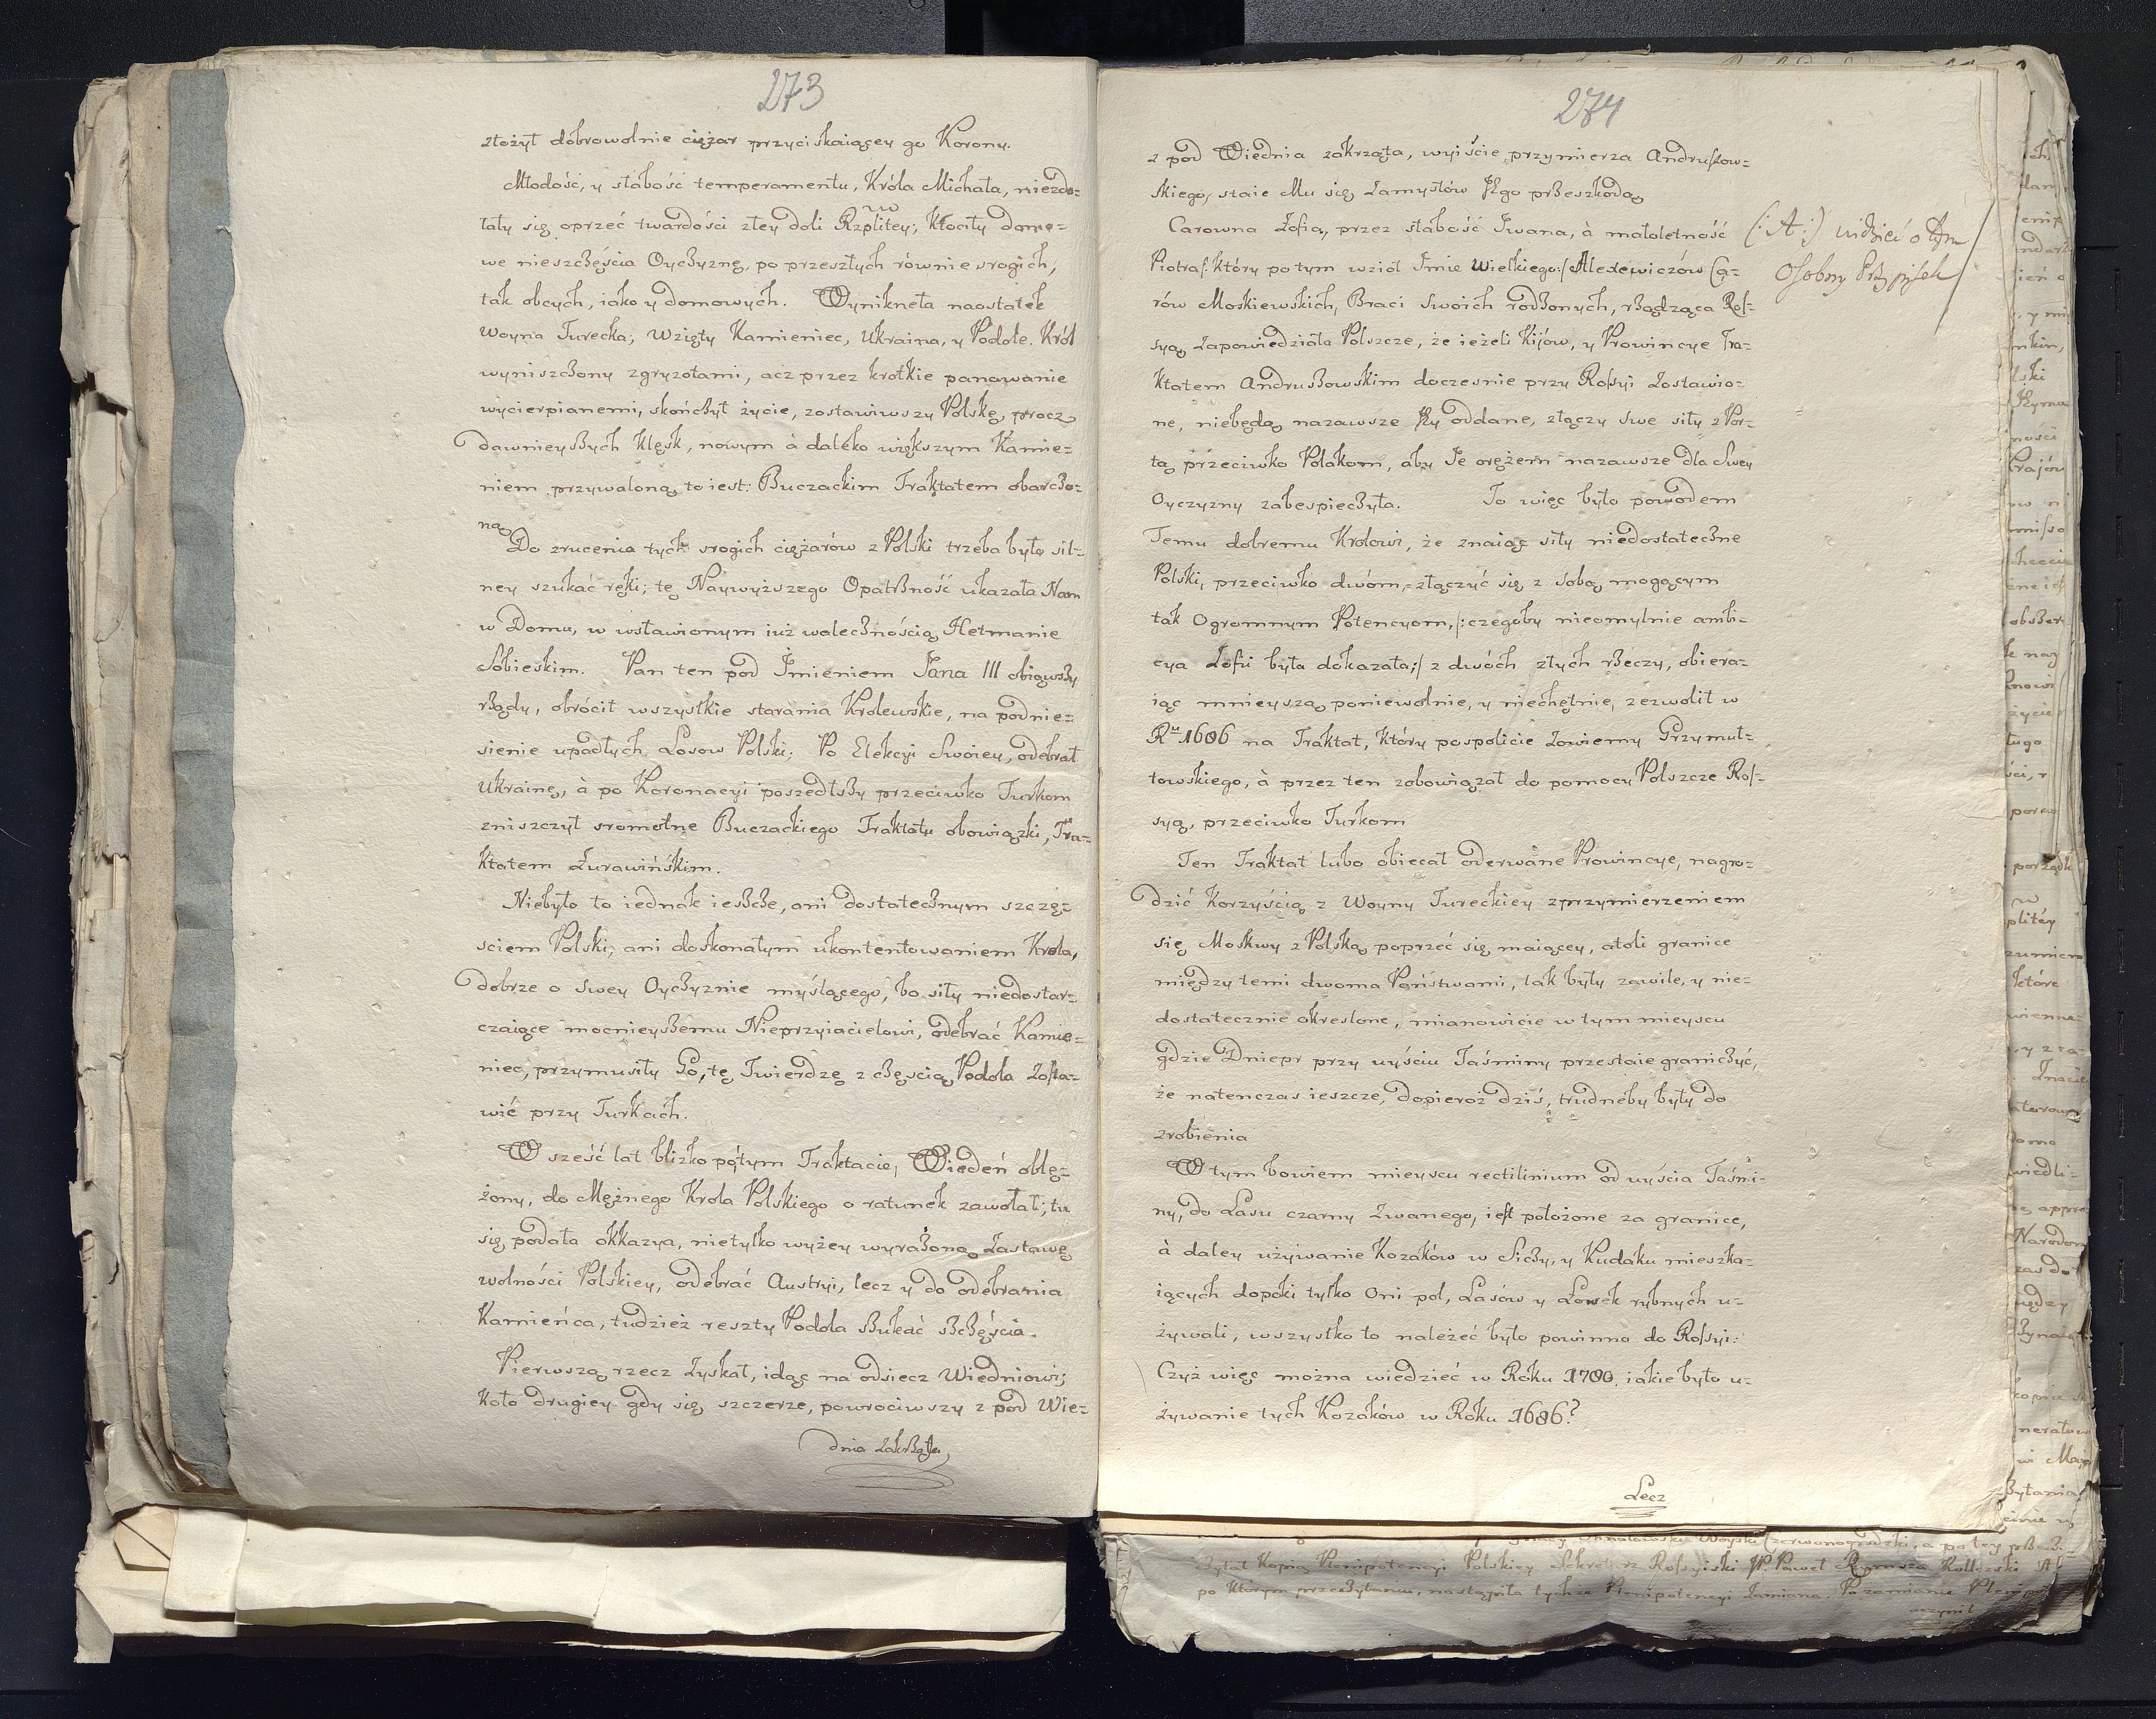 273
złożył dobrowolnie ciężar przyciskaiącey go Korony.
Młodość, y słabość temperamentu, Króla Michała, niezdo=
łały się oprzeć twardości złey doli Rzplitey; kłóciły domo=
we nieszczęścia Oyczyznę, po przeszłych równie srogich,
tak obcych, iako y domowych. Wynikneła naostatek
Woyna Turecka; Wzięty Kamieniec, Ukraina, y Podole. Król
wyniszczony zgryzotami, acz przez krótkie panowanie
wycierpianemi, skończył życie, zostawiwszy Polskę, procz
dawnieyszych klęsk, nowym à daleko większym Kamie=
niem przywaloną, to iest: Buczackim Traktatem obarczo=
ną
Do zrucenia tych srogich ciężarów z Polski trzeba było sil=
ney szukać ręki; tę Naywyższego Opatrzność ukazała Nam
w Domu, w wsławionym iuż walecznością Hetmanie
Sobieskim. Pan ten pod Imieniem Jana III obiąwszy
rządy, obrócił wszystkie starania Krolewskie, na podnie=
sienie upadłych Losow Polski; Po Elekcyi Swoiey, odebrał
Ukrainę, à po Koronacyi poszedłszy przeciwko Turkom
zniszczył sromotne Buczackiego Traktatu obowiązki, Tra=
ktatem Żurawińskim.
Niebyło to iednak ieszcze, ani dostatecznym szczę=
sciem Polski, ani doskonałym ukontentowaniem Krola,
dobrze o swey Oyczyznie myślącego, bo siły niedostar=
czaiące mocnieyszemu Nieprzyiacielowi, odebrać Kamie=
niec, przymusiły Go, tę Twierdzę z częścią Podola zosta=
wić przy Turkach.
W sześć lat blizko potym Traktacie, Wiedeń oblę=
żony, do Mężnego Krola Polskiego o ratunek zawołał; tu
się podała okkazya, nietylko wyżey wyrażoną Zastawę
wolności Polskiey, odebrać Austryi, lecz y do odebrania
Kamieńca, tudzież reszty Podola szukać szczęścia.
Pierwszą rzecz zyskał, idąc na odsiecz Wiedniowi;
koło drugiey gdy się szczerze, powrociwszy z pod Wie=
dnia zakrząta,
274
z pod Wiednia zakrząta, wyiście przymierza Andruszow=
skiego, staie Mu się Zamysłów Jego przeszkodą
Carowna Zofia, przez słabość Iwana, à małoletność
Piotra/: który potym wziół Imie Wielkiego:/ Alexiewiczów Ca=
rów Moskiewskich, Braci Swoich rodzonych, rządząca Ros=
syą, Zapowiedziała Polszcze, że ieżeli Kijów, y Prowincye Tra=
ktatem Andruszowskim doczesnie przy Rossyi Zostawio=
ne, niebędą nazawsze Jey oddane, złączy swe siły z Por=
tą przeciwko Polakom, aby Je orężem nazawsze dla Swey
Oyczyzny zabespieczyła. To więc było powodem
Temu dobremu Krolowi, że znaiąc siły niedostateczne
Polski, przeciwko dwóm, złączyć się z sobą mogącym
tak Ogromnym Potencyom, /:czegoby nieomylnie ambi=
cya Zofii była dokazała:/ z dwóch złych rzeczy, obiera=
iąc mnieyszą poniewolnie, y niechętnie, zezwolił w
Ru 1686 na Traktat, który pospolicie Zowiemy Grzymuł=
towskiego, à przez ten zobowiązał do pomocy Polszcze Ros=
syą, przeciwko Turkom
Ten Traktat lubo obiecał oderwane Prowincye, nagro=
dzić Korzyścią z Woyny Tureckiey z przymierzeniem
się Moskwy z Polską poprzeć się maiącey, atoli granice
między temi dwoma Państwami, tak były zawiłe, y nie=
dostatecznie okreslone, mianowicie w tym mieyscu
gdzie Dniepr przy uyściu Taśminy przestaie graniczyć,
że natenczas ieszcze, dopieroż dziś, trudneby były do
zrobienia
W tym bowiem mieyscu rectilinium od uyścia Taśmi=
ny, do Lasu czarny Zwanego, iest położone za granice,
à daley używanie Kozaków w Siczy, y Kudaku mieszka=
iących dopoki tylko Oni pol, Lasów y Łowek rybnych u=
żywali, wszystko to należeć było powinno do Rossyi:
Czyż więc można wiedzieć w Roku 1780. iakie było u=
żywanie tych Kozaków w Roku 1686?
Lecz
(: A :) widzieć o tym
Osobny Przypisek